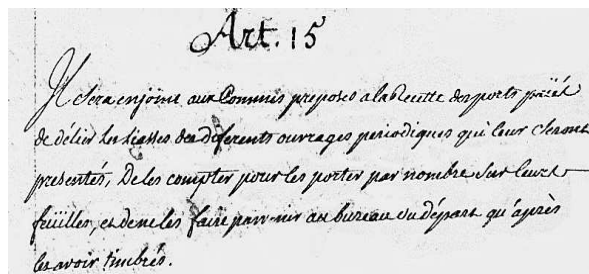 Art. 15
Il sera enjoint aux Commis preposés a la Recette des ports payés
de délier les liasses des differents ouvrages periodiques qui leur seront
presentés, De les compter pour les porter par nombre sur leurs
feüilles, et de ne les faire parvenir au bureau du départ qu'après
les avoir timbrés.